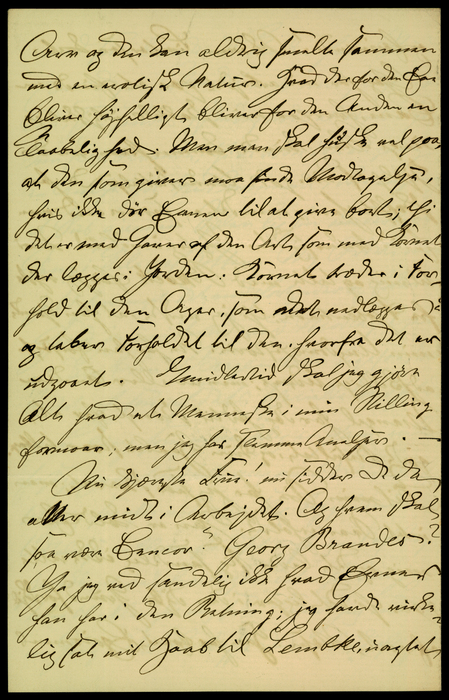 Arm og den kan aldrig smelte sammen
med en erotisk Natur. Hvad der for den Ene
bliver højhelligt bliver for den Anden en
Taabelighed. Men man skal huske vel paa,
at den som giver maa finde Modtagelse,
hvis ikke dør Evnen til at give bort; thi
det er med Gaver af den Art som med Kornet
der lægges i Jorden: Kornet træder i For-
hold til den Ager, som det nedlægges i
og taber Forholdet til den, hvorfra det er
udgaaet. Imidlertid skal jeg gjøre
Alt hvad et Menneske i min Stilling
formaaer, men jeg har slemme Anelser. —
Nu kjæreste Ven! nu sidder De da
atter midt i Arbejdet. Og hvem skal
saa være Censor? Georg Brandes?
Ja jeg ved sandelig ikke hvad Evner
han har i den Retning; jeg havde virke-
lig sat mit Haab til Lembke, uagtet